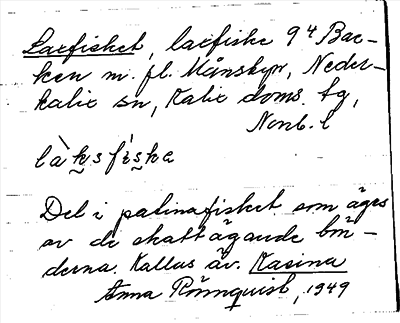 Laxfisket, laxfiske 9⁴ Bac-
ken m. fl. Månskyr, Neder-
kalix sn, Kalix doms. tg,
Norrb. l
là̱ksfìs̱ke
Del i patinafisket som äges
av de skattägande bön-
derna. Kallas äv. Kasina
Anna Rönnquist, 1949